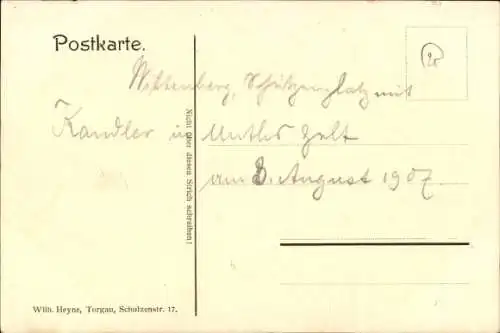 Postkarte.
20
Wittenberg, Schützenplatz mit
Kandler in Muths Zelt
am 8. August 1907.
Nicht über diesen Strich schreiben!
Wilh. Heyne, Torgau, Schulzenstr. 17.